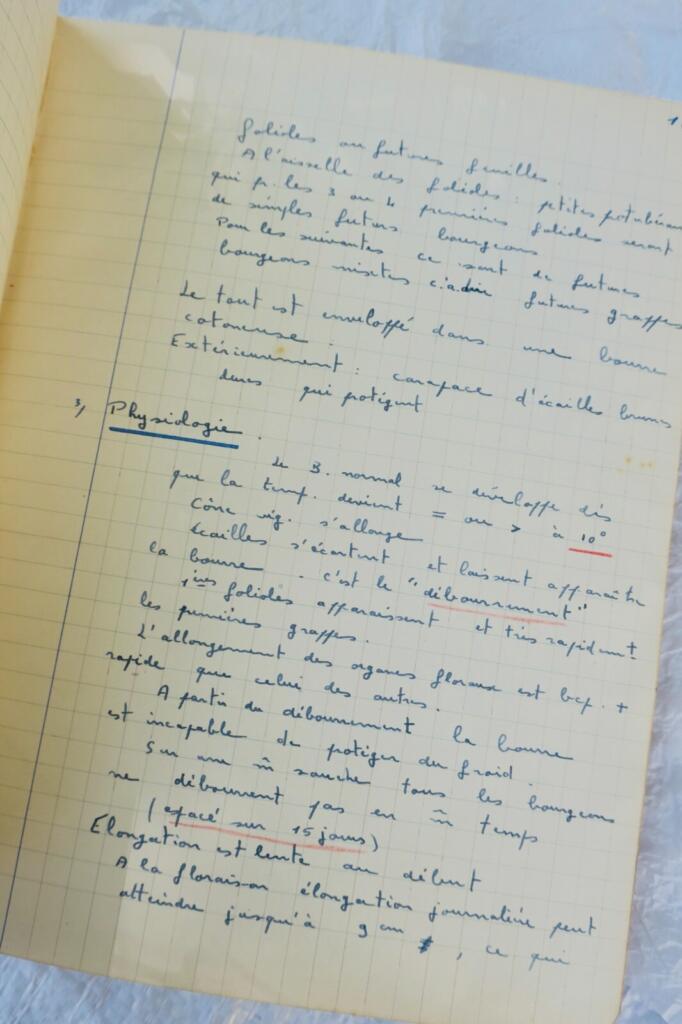 1
folioles ou futures feuilles.
A l'aisselle des folioles : petites protubéran
qui pr. les 3 ou 4 premières folioles seront
de simples futurs bourgeons
Pour les suivantes ce sont de futures
bourgeons mixtes c.a.dire futures grappes
Le tout est enveloppé dans une bourre
cotoneuse.
Extérieurement : carapace d'écailles brunes
dures qui protègent
3) Physiologie.
Le B. normal se développe dès
que la temp. devient = ou > à 10°
Cône vég. s'allonge
écailles s'écartent et laissent apparaître
la bourre. c'est le "débourrement"
1ères folioles apparaissent et très rapidemt
les premières grappes.
L'allongement des organes floraux est bcp. +
rapide que celui des autres.
A partir du débourrement la bourre
est incapable de protéger du froid.
Sur une m̃ souche tous les bourgeons
ne débourrent pas en m̃ temps
(espacé sur 15 jours)
Elongation est lente au début
A la floraison élongation journalière peut
atteindre jusqu'à 9 cm, ce qui